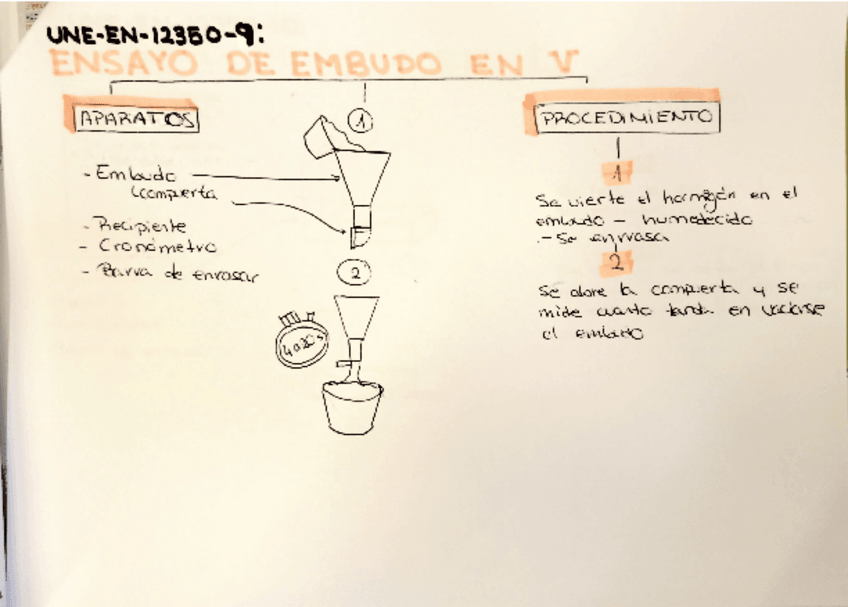 UNE-EN-12350-9:
ENSAYO DE EMBUDO EN V
APARATOS
- Embudo
compuerta
- Recipiente
- Cronómetro
- Barra de enrasar
1
2
4 a 20 s
PROCEDIMIENTO
1
Se vierte el hormigón en el
embudo - humedecido
- Se enrasa
2
Se abre la compuerta y se
mide cuanto tarda en vaciarse
el embudo